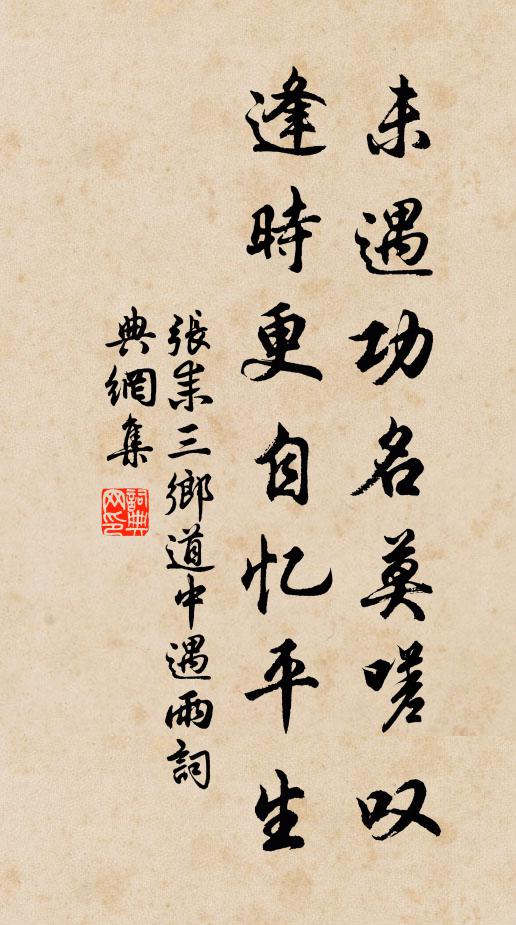 未遇功名莫嗟叹
逢時更自忆平生
張耒三鄉道中遇雨詞
典網集
詞典网印